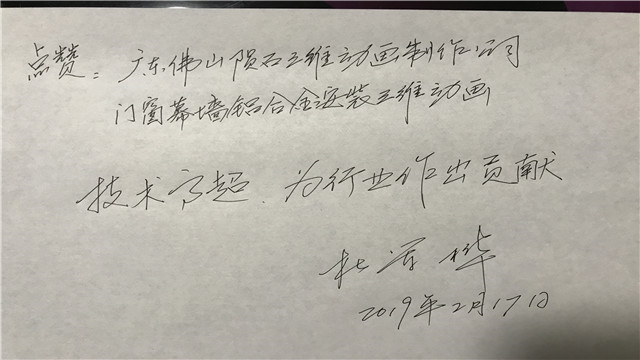 点赞：广东佛山陨石三维动画制作公司
门窗幕墙铝合金安装三维动画
技术高超，为行业作出贡献
杜万华
2019年2月17日